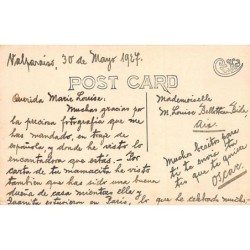 Valparaiso, 30 de Mayo 1927.
POST CARD
Querida Marie Louise,
Muchas gracias por
la preciosa fotografia que me
has mandado, en traje de
española, y donde he visto lo
encantadora que estás. - Por
carta de tu mamacita he visto
tambien que has sido una buena
dueña de casa mientras ella y
Juanita estuvieron en Paris, lo que he celebrado mucho
Mademoiselle
M. Louise
Aix
Mucho besitos para
ti te envia tu
tio que te quiere
Oscar